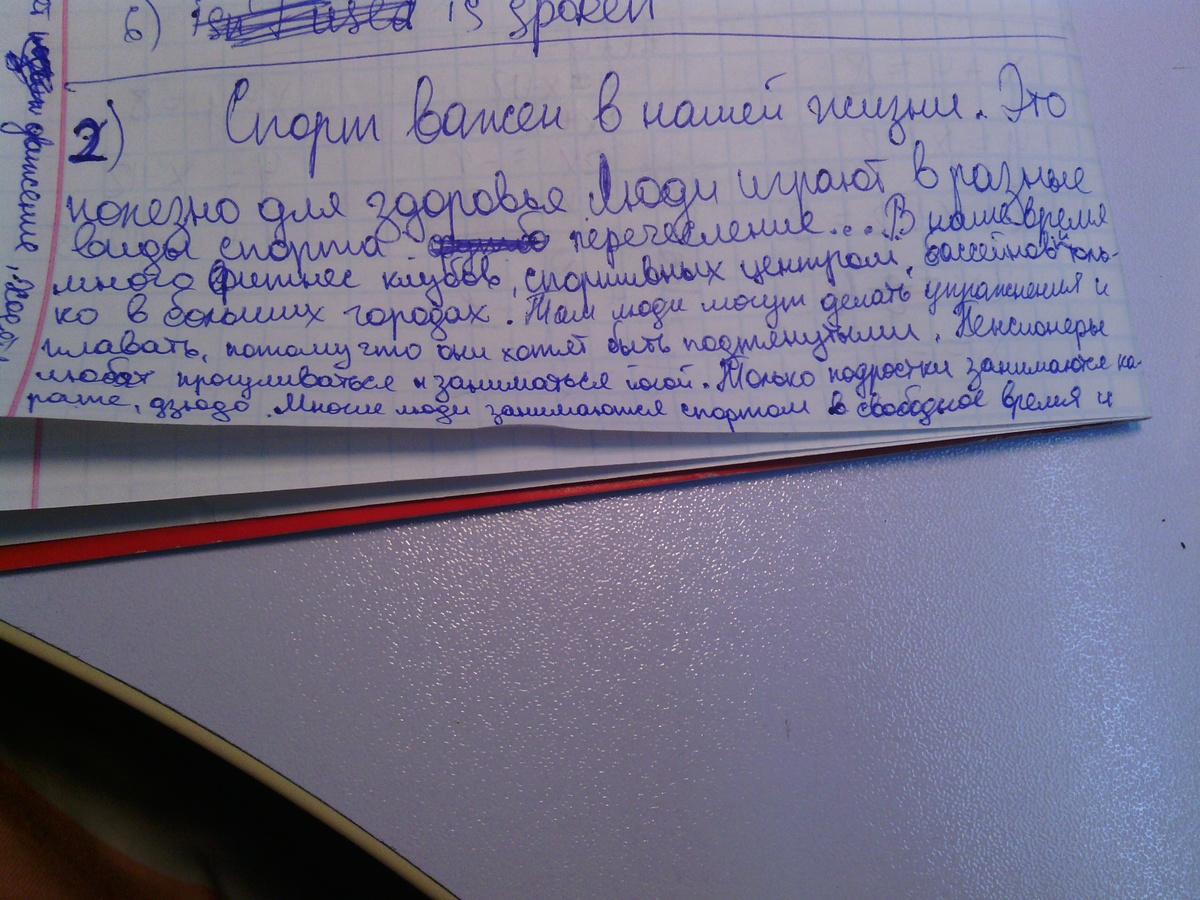 6) is spoken
2) Спорт важен в нашей жизни. Это
полезно для здоровья Люди играют в разные
виды спорта перечесление... В наше время
много фитнес клубов, спортивных центром, бассейнов толь-
ко в больших городах. Там люди могут делать упражнения и
плавать, потому что они хотят быть подтянутыми. Пенсионеры
любят прогуливаться и заниматься йогой. Только подростки занимаются ка-
рате, дзюдо. Многие люди занимаются спортом в свободное время и